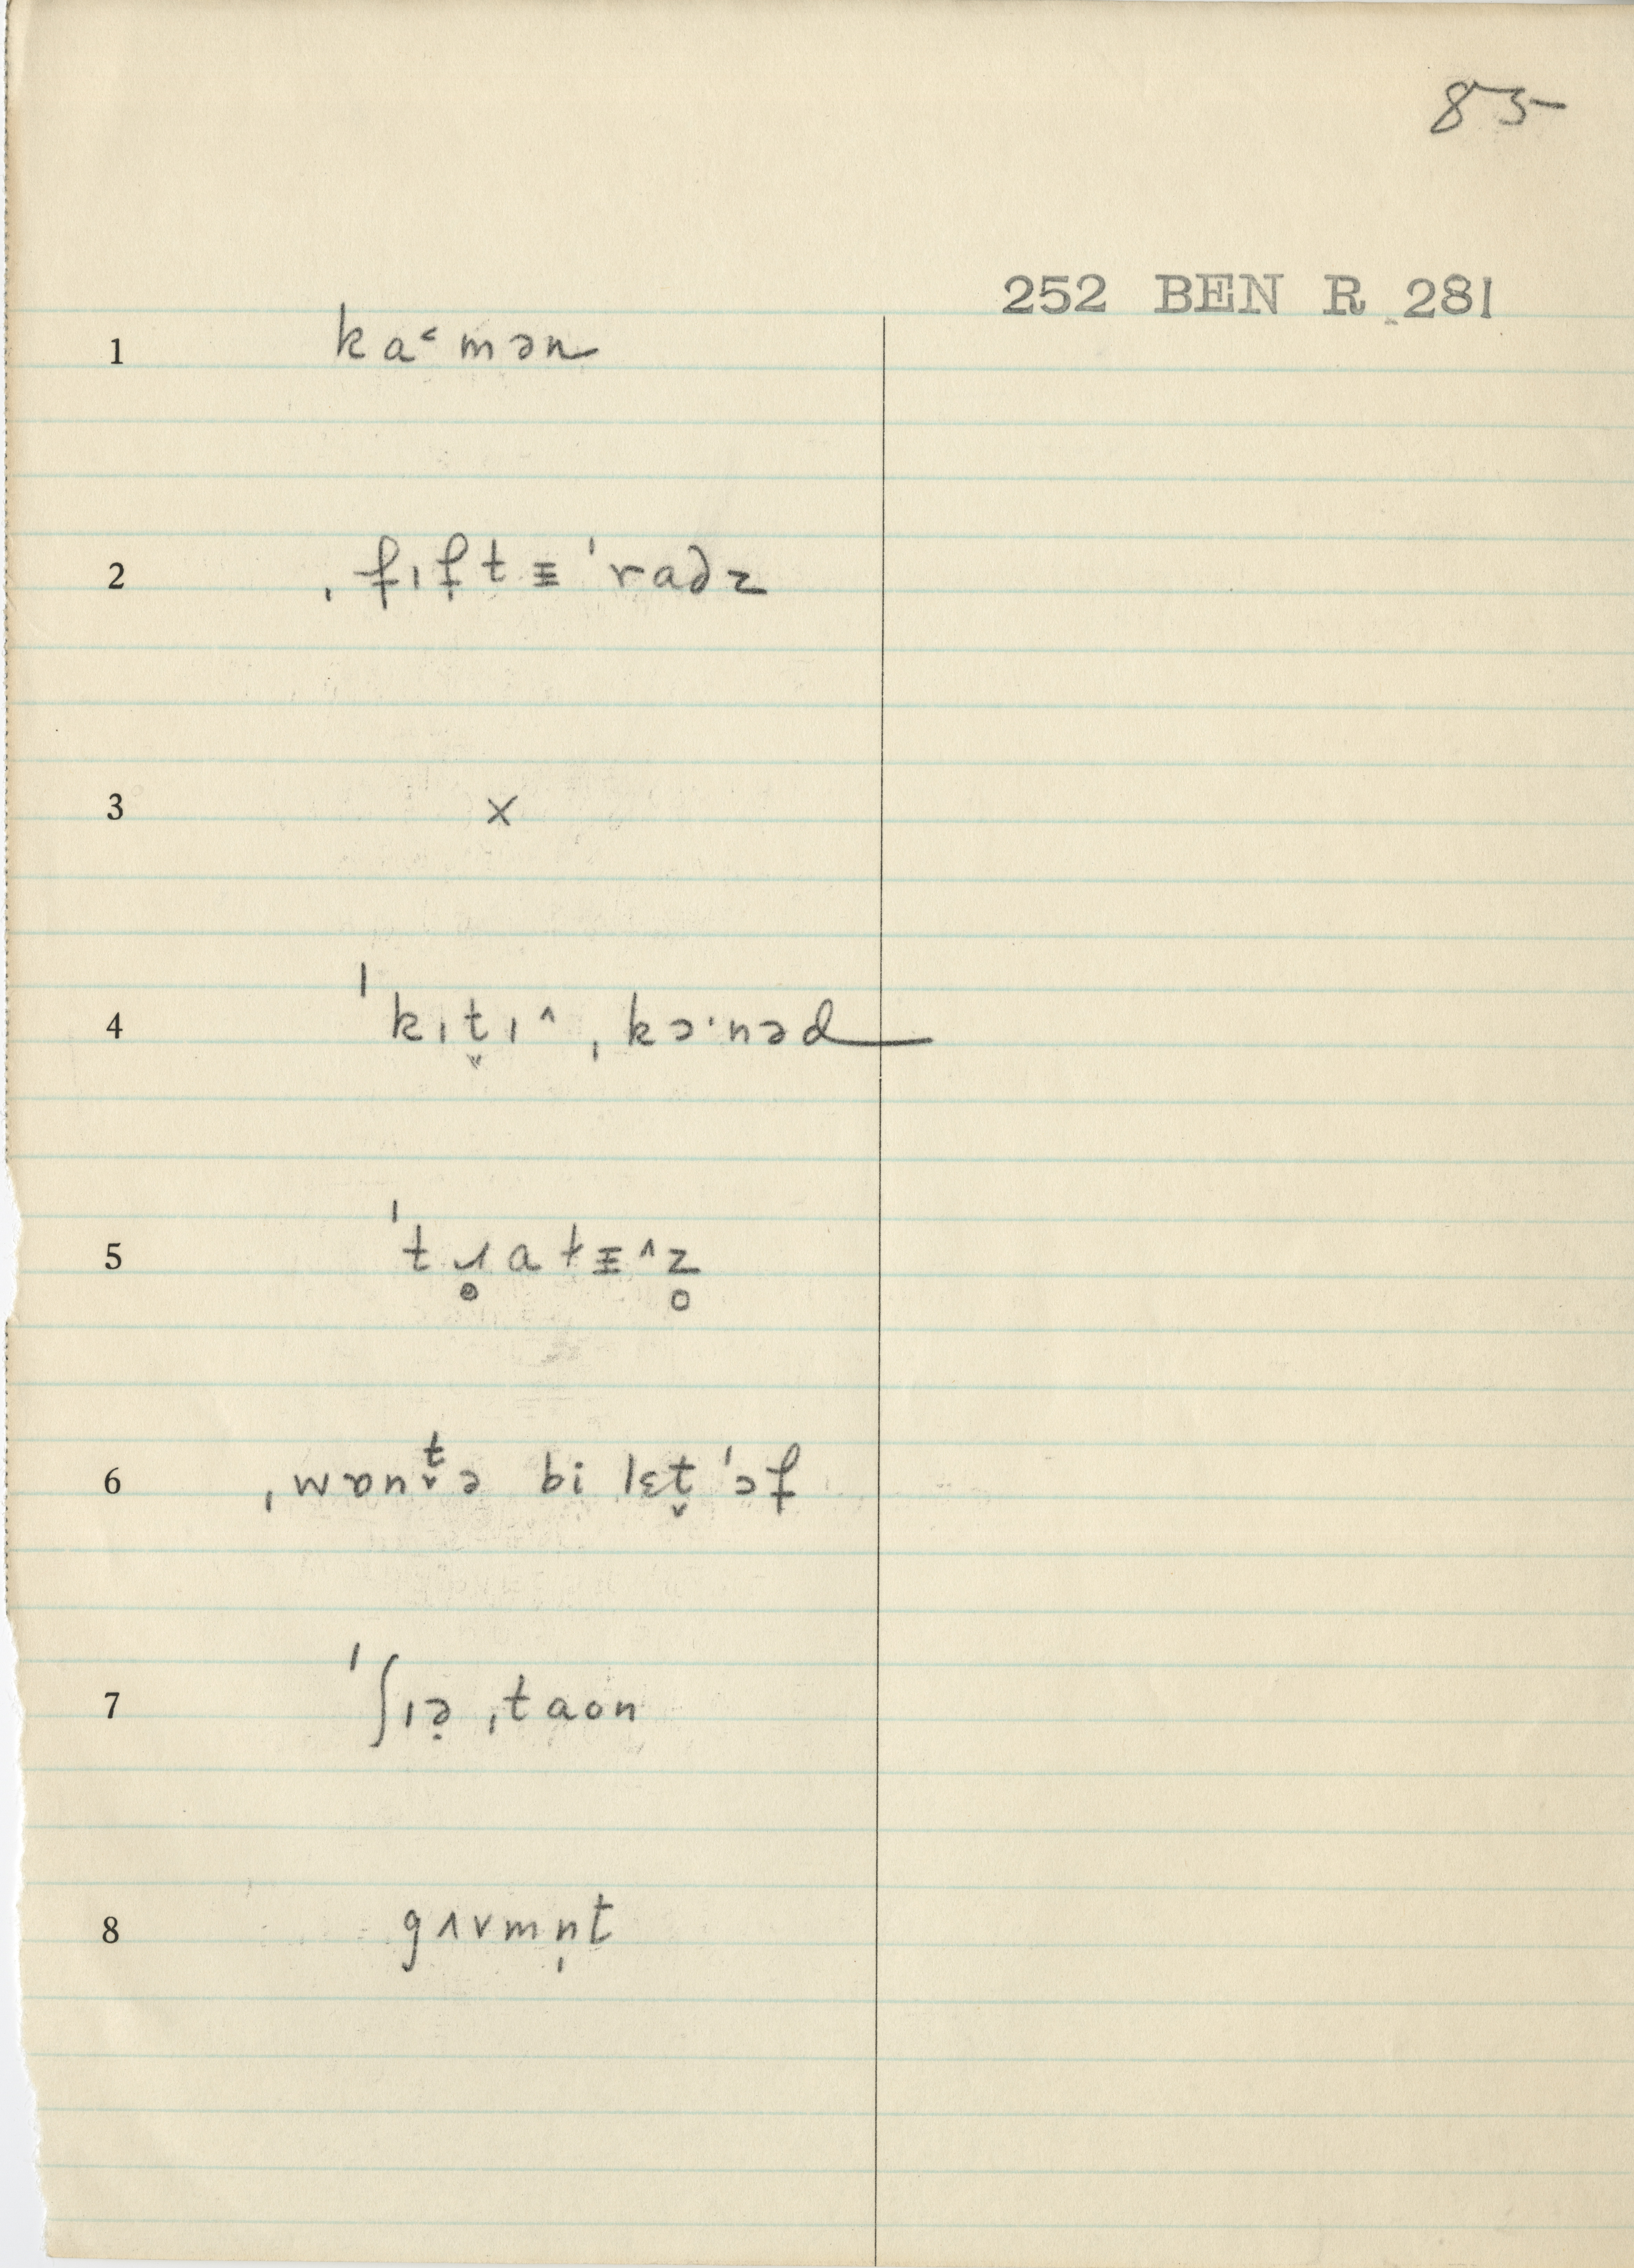 85
252 BEN R 281
1 ka˂mən
2 ˌfɪftɨ ˈradz
3 x
4 ˈkɪt̬ɪ˄ ˌkɔ·nəd
5 ˈtɹ̥atɨ˄z̥
6 ˌwɒnt̬ə bi lɛt̬ ˈɔf
7 ˈʃɪə̣ ˌtaon
8 gʌvmn̩t